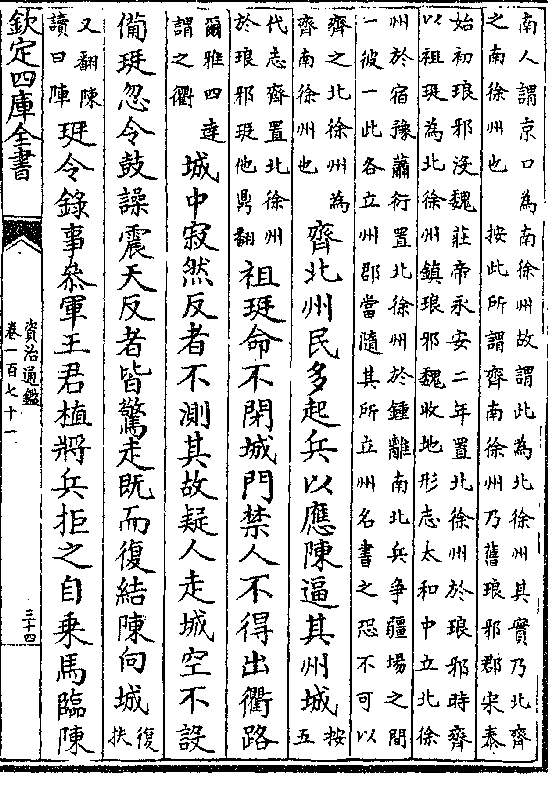 南人謂京口為南徐州故謂此為北徐州其實乃北齊
之南徐州也　按此所謂齊南徐州乃舊琅邪郡宋泰
始初琅邪沒魏莊帝永安二年置北徐州於琅邪時齊
以祖珽為北徐州鎮琅邪魏收地形志太和中立北徐
州於宿豫蕭衍置北徐州於鍾離南北兵爭疆場之間
一彼一此各立州郡當隨其所立州名書之恐不可以
齊之北徐州為
齊南徐州也
齊北州民多起兵以應陳逼其州城
按
五
代志齊置北徐州
於琅邪珽他鼎翻
祖珽命不閉城門禁人不得出衢路
爾雅四達
謂之衢
城中寂然反者不測其故疑人走城空不設
備珽忽令鼓譟震天反者皆驚走既而復結陳向城
復
扶
又翻陳
讀曰陣
珽令錄事叅軍王君植將兵拒之自乗馬臨陳
欽定四庫全書
資治通鑑
卷一百七十一
三十四